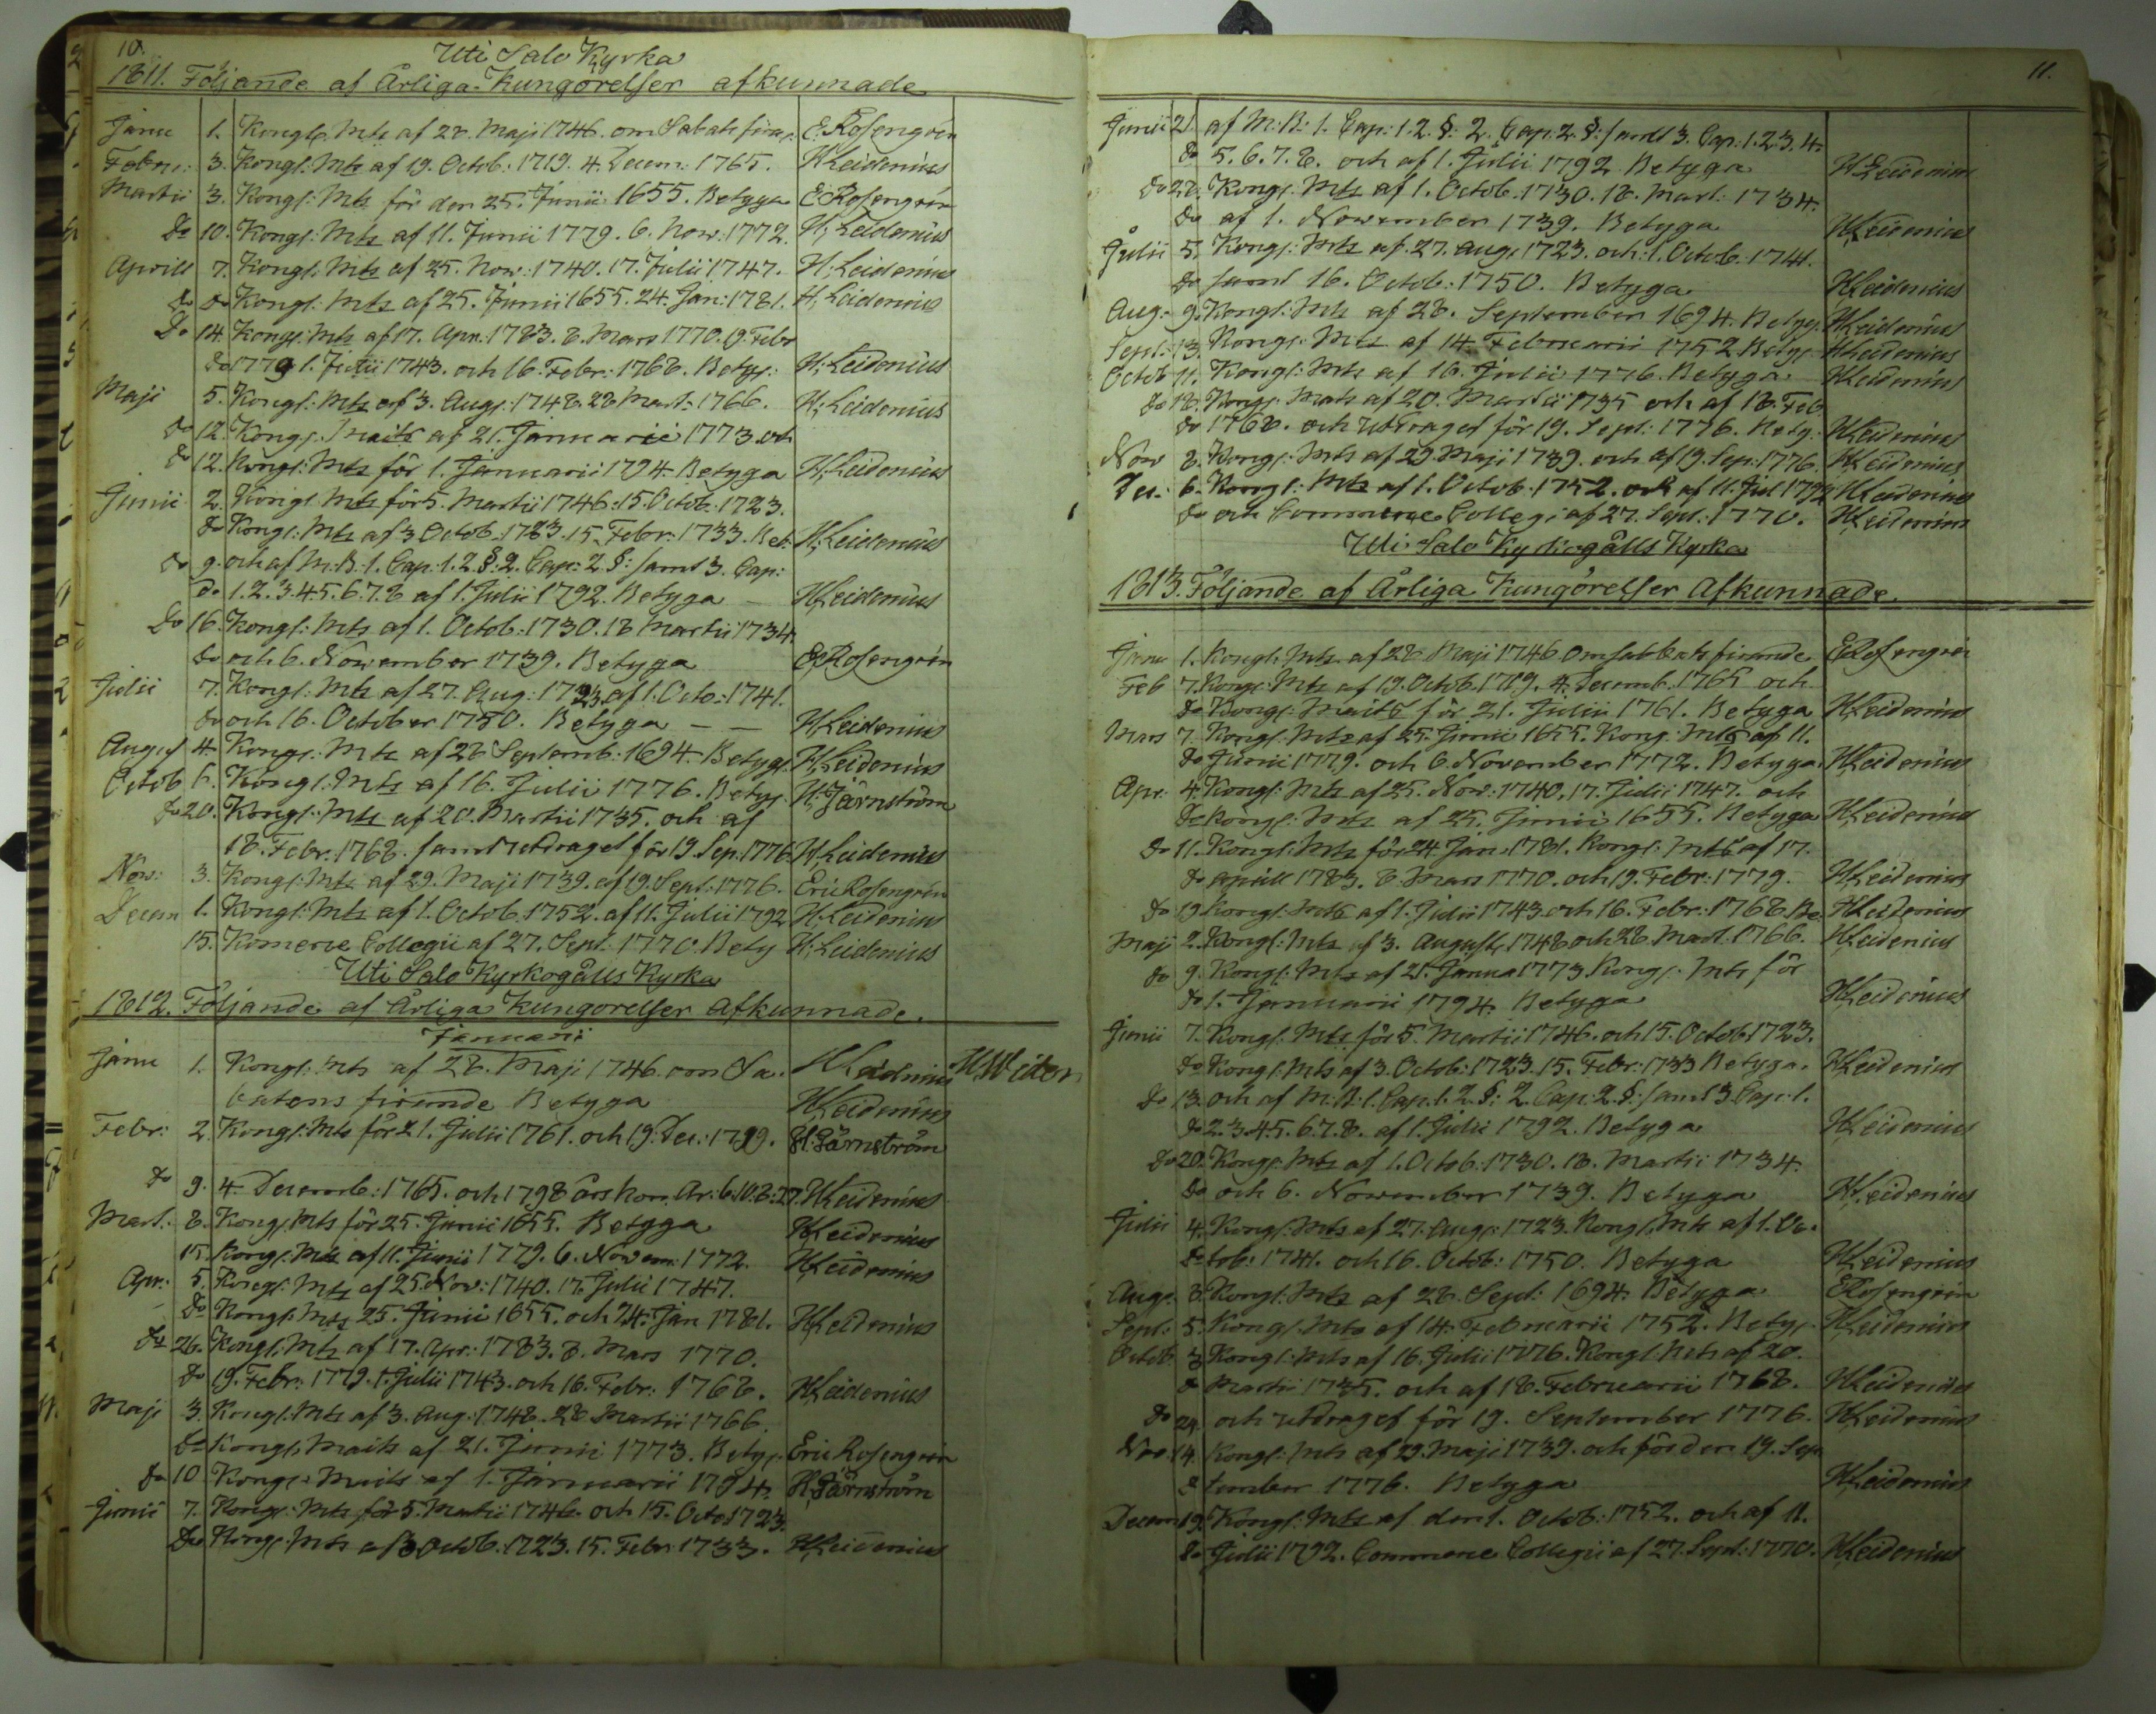 10.
Uti Salo Kyrka
1811. Följande af Årliga Kungörelser afkunnade
Janu 1. Kongl. Mts af 28. Maji 1746. om Sabats firan: E. Rosengrén
Febru: 3. Kongl: Mts af 19. Octob: 1719. 4. Decem: 1765. H Leidenius
Martii 3. Kongl: Mts för den 25. Junii 1655. Betyga E: Rosengrén
Do 10. Kongl: Mts af 11. Junii 1779. 6. Now: 1772. H: Leidenius
Aprill 7. Kongl: Mts af 25. Now: 1740. 17. Julii 1747. H: Leidenius
do do Kongl: Mts af 25. Junii 1655. 24. Jan: 1781. H: Leidenius
Do 14. Kongl: Mts af 17. Apr: 1783. 8. Mars 1770. 19. Febr
do 1779 1. Julii 1743. och 16. Febr: 1768. Betyg: H: Leidenius
Maji 5. Kongl: Mts af 3. Aug: 1748. 28 Mart: 1766. H: Leidenius
do 12. Kongl. Maits af 21. Januarii 1773. och
do 12. Kongl: Mts för 1. Januarii 1794. Betyga H: Leidenius
Junii 2. Kongl. Mts för 5. Martii 1746. 15. Octob. 1723.
do Kongl: Mts af 3 Octob: 1723. 15. Febr: 1733. Bet: H: Leidenius
do 9. och af M: B: 1. Cap: 1. 2 §: 2. Cap: 2 §: samt 3. Cap:
do 1. 2. 3. 4. 5. 6. 7. 8 af 1. Julii 1792. Betyga — H: Leidenius
Do 16. Kongl: Mts af 1. Octob: 1730. 18 Martii 1734
do och 6. November 1739. Betyga E: Rosengrén
Julii 7. Kongl: Mts af 27. Aug: 1723. af 1. Octo: 1741.
do och 16. October 1750. Betyga — — H: Leidenius
August 4. Kongl: Mts af 28 Septemb: 1694. Betyg: H: Leidenius
Octob 6. Kongl: Mts af 16. Julii 1776. Betyg: H: Järnström
do 20. Kongl: Mts af 20. Martii 1735. och af
18. Febr: 1768. samt utdraget för 19. Sep. 1776 H: Leidenius
Now: 3. Kongl: Mts af 29. Maji 1739. af 19. Sept: 1776. Eric Rosengrén
Decem 1. Kongl: Mts af 1. Octob. 1752. af 11. Julii 1792 H: Leidenius
15. Komerce Collegii af 27. Sept. 1770. Bety H: Leidenius
Uti Salo Kyrkogålls Kyrka
1812. Följande af Årliga Kungorelser Afkunnade.
Januarii
Janu 1. Kongl: Mts af 28. Maji 1746. om Sa- H Leidenius
batens firande Betyga H Leidenius
Febr: 2. Kongl: Mts för 21. Julii 1761. och 19. Dec: 1799. H: Järnström
do 9. 4. Decemb: 1765. och 1798 H Leidenius
Mart. 8. Kongl Mts för 25. Junii 1655. Betyga H Leidenius
15. Kongl: Mts af 11. Junii 1779. 6. Novem: 1772. H Leidenius
Apr: 5. Kongl: Mts af 25 Nov: 1740. 17. Julii 1747.
Do Kongl: Mts 25. Junii 1655. och 24. Jan 1781. H Leidenius
do 26. Kongl: Mts af 17. Apr: 1783. 8. Mars 1770.
do 19. Febr: 1779. 1. Julii 1743. och 16. Febr: 1768. H Leidenius
Maji 3. Kongl. Mts af 3. Aug: 1748. 28 Martii 1766
do Kongl. Maits af 21. Junii 1773. Betyg: Eric Rosengrén
do 10 Kongl: Maits af 1. Januarii 1794. H Järnström
Junii 7. Kongl: Mts för 5. Martii 1746. och 15. Octo 1723.
Do Kongl: Mts af 3 Octob. 1723. 15. Febr 1733. H Leidenius
11.
Junii 21 af M: B: 1. Cap: 1. 2. §: 2. Cap: 2. §: samt 3. Cap: 1. 2. 3. 4.
do 5. 6. 7. 8. och af 1. Julii 1792 Betyga H Leidenius
do 28. Kongl: Mts af 1. Octob. 1730. 18. Mart: 1734.
do af 1. November 1739. Betyga H Leidenius
Julii 5. Kongl: Mts af 27. Aug: 1723. och 1. Octob. 1741.
do samt 16. Octob: 1750. Betyga H Leidenius
Aug: 9. Kongl: Mts af 28. September 1694. Betyg. H Leidenius
Sept: 13. Kongl: Mts af 14. Februarii 1752 Betyg. H Leidenius
Octob 11. Kongl: Mts af 16. Julii 1776. Betyga H Leidenius
do 18. Kongl: Mats af 20. Martii 1735 och af 18. Feb
do 1768. och utdraget för 19. Sept: 1776. Bety: H Leidenius
Now 8. Kongl: Mts af 29 Maji 1739. och af 19. Sep: 1776. H Leidenius
Des: 6. Kongl: Mts af 1. Octob: 1752. och af 11. Jul 1792 H Leidenius
do och Commerce Collegi af 27. Sept: 1770. H Leidenius
Uti Salo Kyrkogålls Kyrka
1813. Följande af Årliga Kungörelser Afkunnade.
Janu 1. Kongl: Mts af 28 Maji 1746 om sabbats firande E Rosengrén
Feb 7. Kongl: Mts af 19. Octob. 1719. 4. Decemb. 1765 och
do Kongl: Maits för 21. Julii 1761. Betyga H Leidenius
Mars 7. Kongl: Mts af 25. Junii 1655. Kong: Mts af 11.
do Junii 1779. och 6. November 1772. Betyga. H Leidenius
Apr: 4. Kongl: Mts af 25. Nov: 1740. 17. Julii 1747. och
Do Kongl: Mts af 25. Junii 1655. Betyga H Leidenius
do 11. Kongl: Mts för 24 Jan: 1781. Kongl: Mts af 17.
do Aprill 1783. 8. Mars 1770. och 19. Febr: 1779. H Leidenius
do 19 Kongl: Mts af 1. Julii 1743. och 16. Febr: 1768. Be. H Leidenius
Maji 2. Kongl: Mts af 3. Augusti 1748 och 28. Mart 1766. H Leidenius
do 9. Kongl: Mts af 21. Janua 1773 Kongl: Mts för
do 1. Januarii 1794. Betyga H Leidenius
Junii 7. Kongl: Mts för 5. Martii 1746. och 15. Octob 1723.
do Kongl: Mts af 3. Octob: 1723. 15. Febr: 1733 Betyga. H Leidenius
do 13. och af M: B: 1. Cap. 1. 2. §: 2. Cap: 2. §: samt 3 Cap: 1.
do 2. 3. 4. 5. 6. 7. 8. af 1. Julii 1792. Betyga H Leidenius
do 20. Kongl: Mts af 1. Octob: 1730. 18. Martii 1734.
do och 6. November 1739. Betyga H Leidenius
Julii 4. Kongl: Mts af 27. Aug: 1723. Kongl Mts af 1. Oc-
do tob: 1741. och 16. Octob: 1750. Betyga H Leidenius
Aug. 8. Kongl: Mts af 28. Sept: 1694. Betyga E Rosengrén
Sept: 5. Kongl: Mts af 14. Februarii 1752. Betyg. H Leidenius
Octob. 3 Kongl: Mts af 16. Julii 1776. Kongl. Mts af 20.
do Martii 1735. och af 18. Februarii 1768. H Leidenius
do 24. och utdraget för 19. September 1776. H Leidenius
Nov. 14. Kongl: Mts af 29. Maji 1739. och för den 19. Sep
do tember 1776. Betyga H Leidenius
Decem 19. Kongl: Mts af den 1. Octob: 1752. och af 11.
do Julii 1792. Commerce Collegii af 27. Sept: 1770. H Leidenius